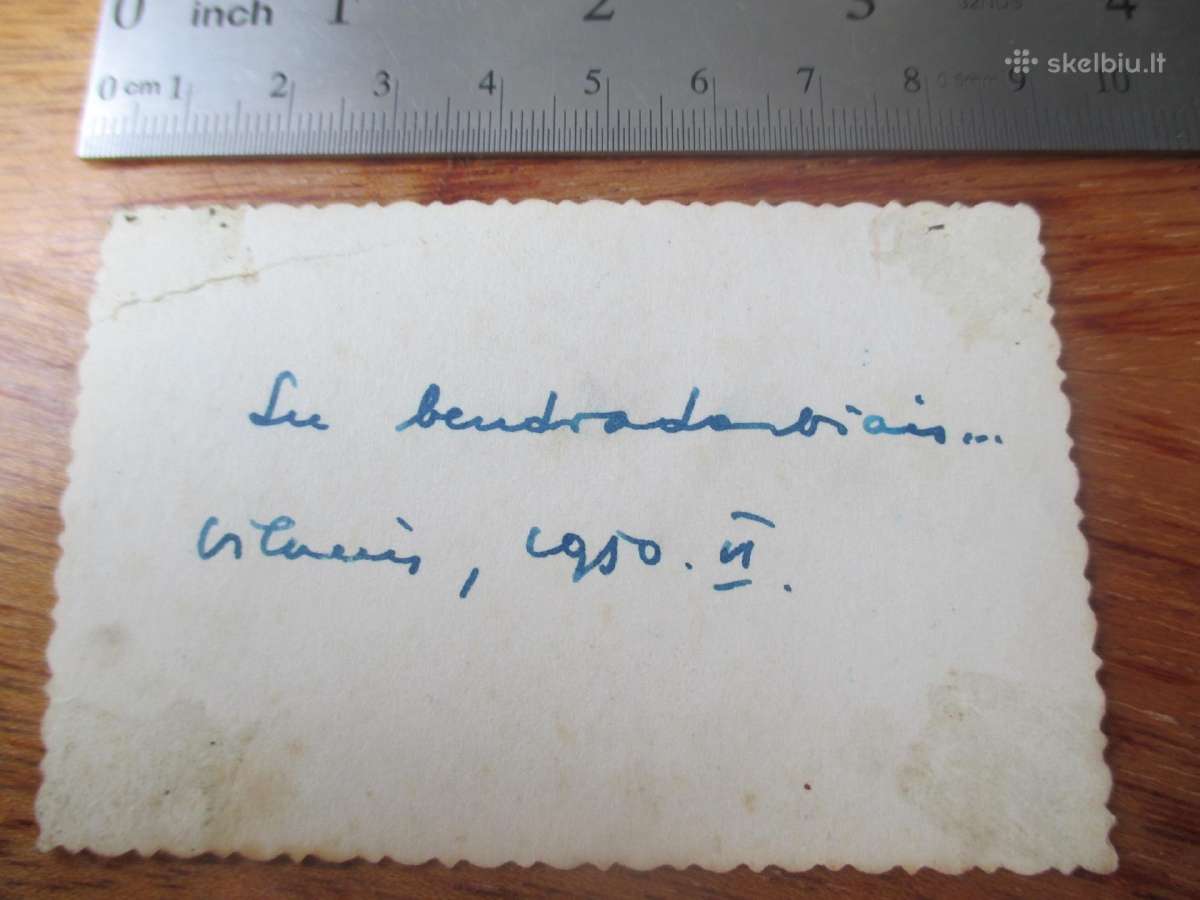 0 inch 1 2 3 4
skelbiu.lt
0 cm 1 2 3 4 5 6 7 8 9 10
Su bendradarbiais...
Vilnius, 1950. VI.